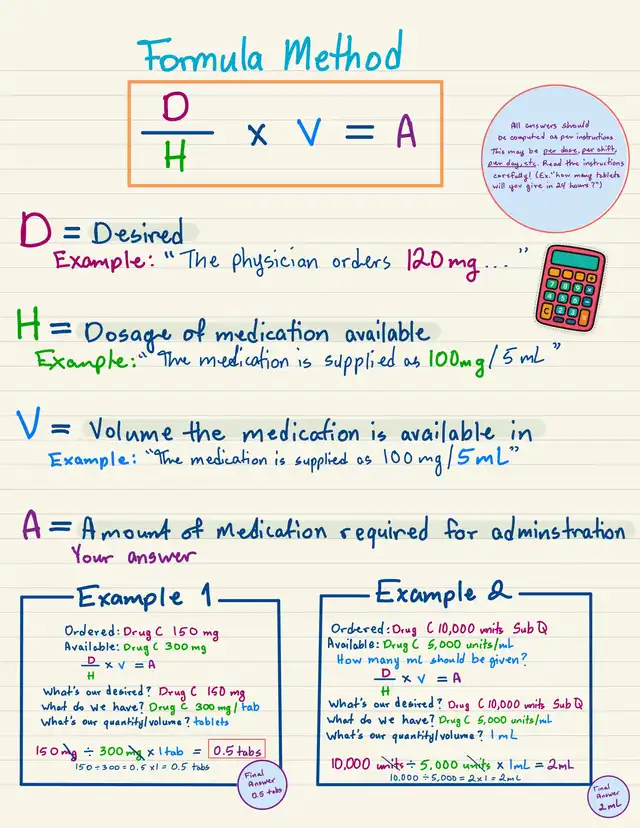 Formula Method
D
H
x V = A
All answers should
be computed as per instructions
This may be per dose, per shift,
per day, etc. Read the instructions
carefully! (Ex. "how many tablets
will you give in 24 hours?")
D = Desired
Example: "The physician orders 120 mg..."
H = Dosage of medication available
Example: "The medication is supplied as 100mg/5 mL"
V = Volume the medication is available in
Example: "The medication is supplied as 100 mg/5mL"
A = Amount of medication required for adminstration
Your answer
Example 1
Ordered: Drug C 150 mg
Available: Drug C 300mg
D
H
x V = A
What's our desired? Drug C 150 mg
What do we have? Drug C 300 mg/tab
What's our quantity/volume? tablets
150 mg ÷ 300 mg x 1 tab = 0.5 tabs
150 ÷ 300 = 0.5 x 1 = 0.5 tabs
Final
Answer
0.5 tabs
Example 2
Ordered: Drug C 10,000 units Sub Q
Available: Drug C 5,000 units/mL
How many mL should be given?
D
H
x V = A
What's our desired? Drug C 10,000 units Sub Q
What do we have? Drug C 5,000 units/mL
What's our quantity/volume? 1 mL
10,000 units ÷ 5,000 units x 1mL = 2mL
10,000 ÷ 5,000 = 2 x 1 = 2mL
Final
Answer
2 mL
7 8 9 x
4 5 6 -
C